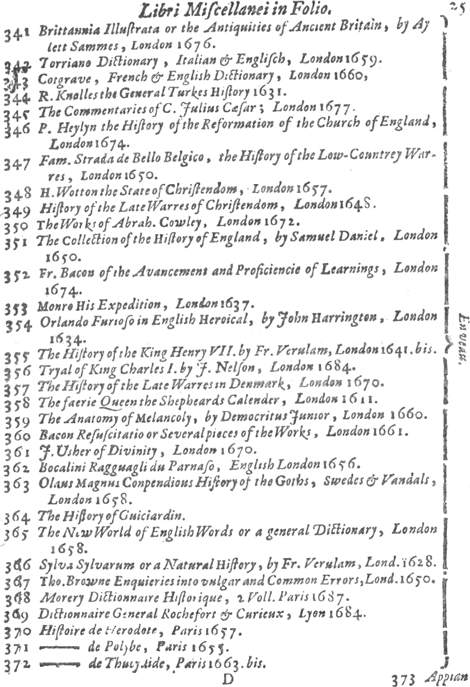 Libri Miscellanei in Folio. 25
341 Brittannia Illustrata or the Antiquities of Ancient Britain, by Ay
lett Sammes, London 1676.
342 Torriano Dictionary, Italian & Englisch, London 1659.
343 Cotgrave, French & English Dictionary, London 1660,
344 R. Knolles the General Turkes History 1631.
345 The Commentaries of C. Julius Cæsar; London 1677.
346 P. Heylyn the History of the Reformation of the Church of England,
London 1674.
347 Fam. Strada de Bello Belgico, the History of the Low-Countrey War-
res, London 1650.
348 H. Wotton the State of Christendom, London 1657.
349 History of the Late Warres of Christendom, London 1648.
350 The Works of Abrah. Cowley, London 1672.
351 The Collection of the History of England, by Samuel Daniel, London
1650.
352 Fr. Bacon of the Avancement and Proficiencie of Learnings, London
1674.
353 Monro His Expedition, London 1637.
354 Orlando Furioso in English Heroical, by John Harrington, London
1634.
355 The History of the King Henry VII. by Fr. Verulam, London 1641. bis.
356 Tryal of King Charles I. by J. Nelson, London 1684.
357 The History of the Late Warres in Denmark, London 1670.
358 The faerie Queen the Shepheards Calender, London 1611.
359 The Anatomy of Melancoly, by Democritus Junior, London 1660.
360 Bacon Resuscitatio or Several pieces of the Works, London 1661.
361 J. Usher of Divinity, London 1670.
362 Bocalini Ragguagli du Parnaso, English London 1656.
363 Olaus Magnus Conpendious History of the Goths, Swedes & Vandals,
London 1658.
364 The History of Guiciardin.
365 The New World of English Words or a general Dictionary, London
1658.
366 Sylva Sylvarum or a Natural History, by Fr. Verulam, Lond. 1628.
367 Tho. Browne Enquieries into vulgar and Common Errors, Lond. 1650.
368 Morery Dictionnaire Historique, 2 Voll. Paris 1687.
369 Dictionnaire General Rochefort & Curieux, Lyon 1684.
370 Histoire de Herodote, Paris 1657.
371 —— de Polybe, Paris 1655.
372 —— de Thucydide, Paris 1663. bis.
D 373 Appian
En veau.